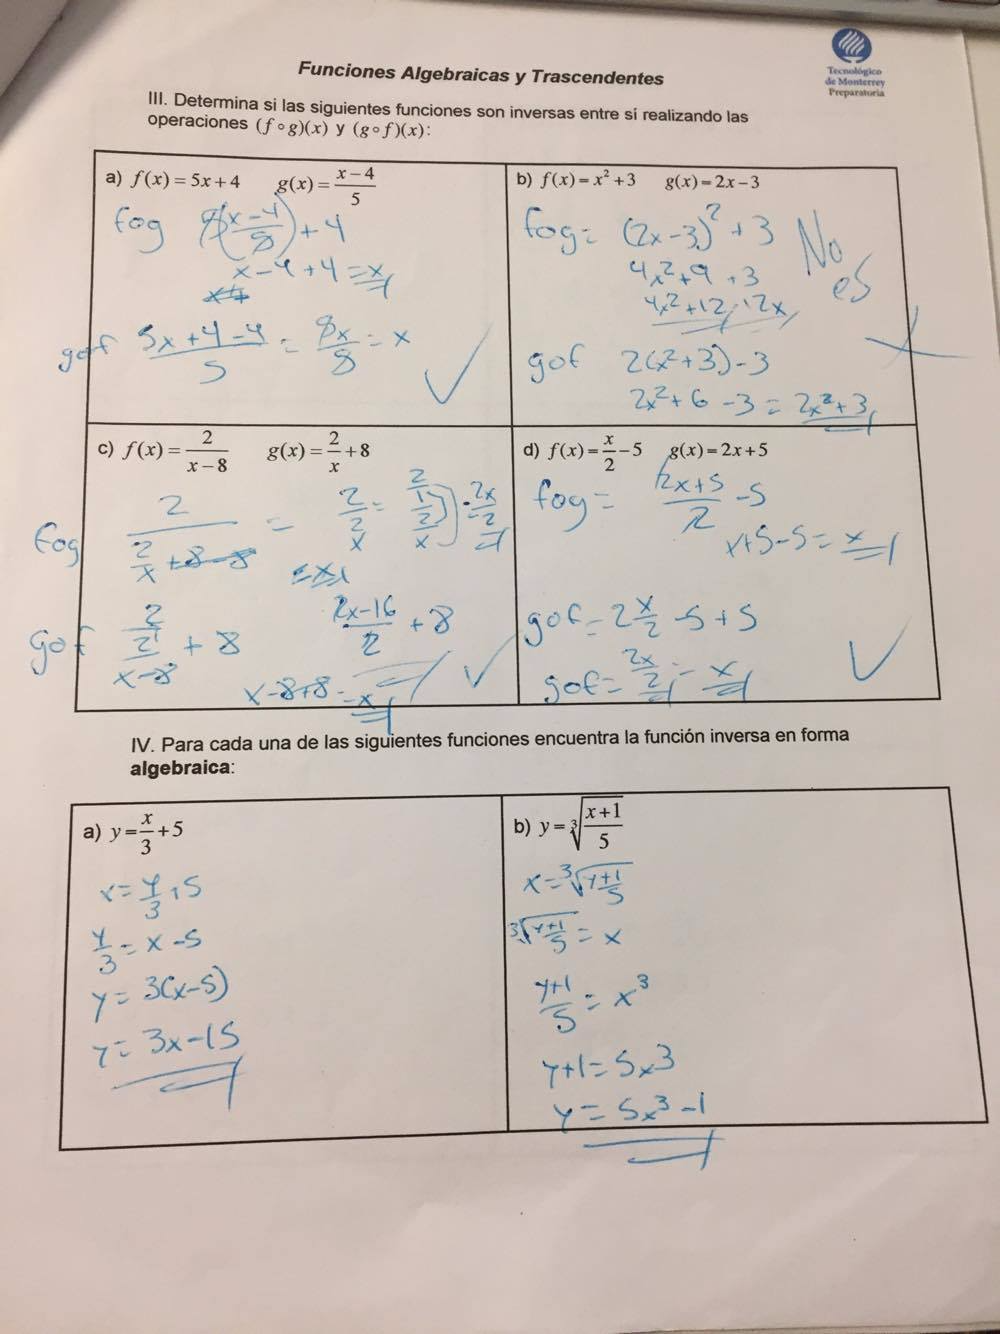 Tecnológico
de Monterrey
Preparatoria
Funciones Algebraicas y Trascendentes
III. Determina si las siguientes funciones son inversas entre sí realizando las
operaciones (f∘g)(x) y (g∘f)(x):
a) f(x) = 5x + 4 g(x) = (x − 4)/5
fog 5(x-4/5) + 4
x - 4 + 4 = x
gof 5x+4-4/5 = 5x/5 = x
b) f(x) = x² + 3 g(x) = 2x − 3
fog = (2x - 3)² + 3
No
es
4x² + 9 + 3
4x² + 12 - 12x
gof 2(x²+3) - 3
2x² + 6 - 3 = 2x² + 3
c) f(x) = 2/(x − 8) g(x) = 2/x + 8
fog 2/(2/x + 8 - 8) = 2/(2/x) = (2/1)/(2/x) = 2x/2
= x
gof 2/(2/x-8) + 8
2x-16/2 + 8
x-8+8 = x
d) f(x) = x/2 − 5 g(x) = 2x + 5
fog = 2x+5/2 - 5
x+5-5 = x
gof = 2 x/2 - 5 + 5
gof = 2x/2 = x
IV. Para cada una de las siguientes funciones encuentra la función inversa en forma
algebraica:
a) y = x/3 + 5
x = y/3 + 5
y/3 = x - 5
y = 3(x-5)
y = 3x-15
b) y = ∛((x+1)/5)
x = ∛(y+1/5)
∛(y+1/5) = x
y+1/5 = x³
y+1 = 5x³
y = 5x³ - 1